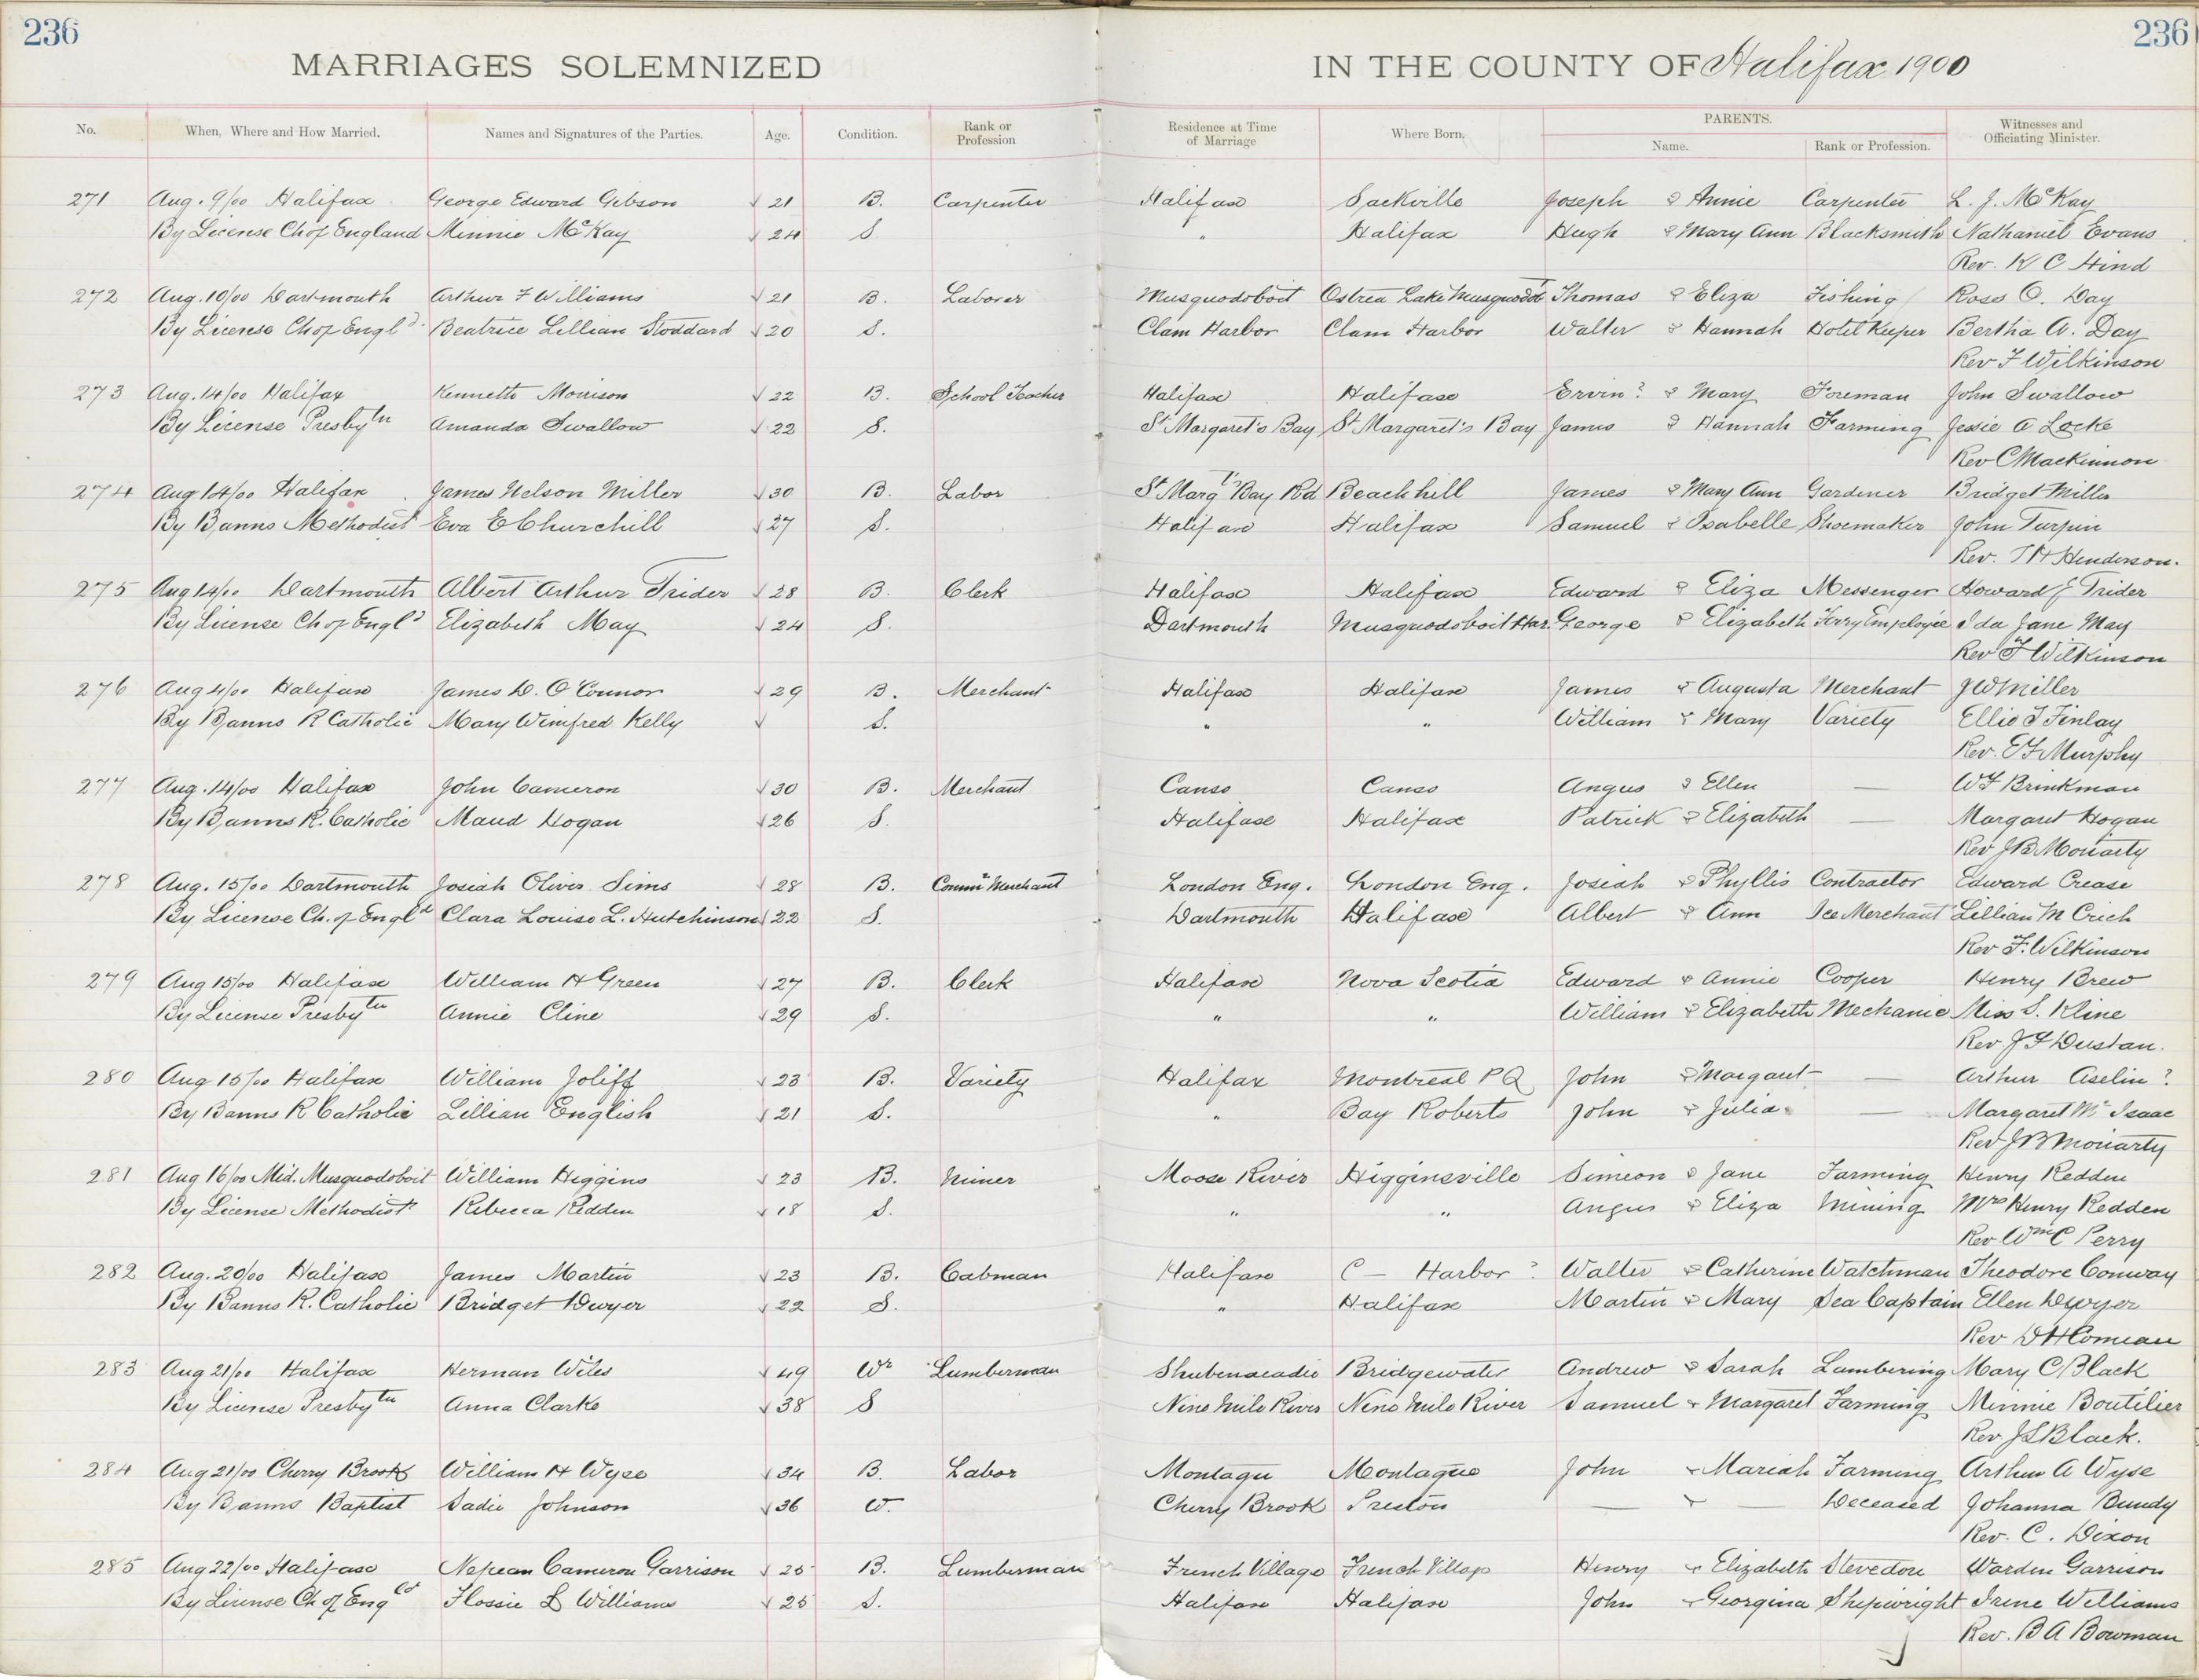 236 236
MARRIAGES SOLEMNIZED IN THE COUNTY OF Halifax 1900
No. When, Where and How Married. Names and Signatures of the Parties. Age. Condition. Rank or Profession Residence at Time of Marriage Where Born. PARENTS. Name. Rank or Profession. Witnesses and Officiating Minister.
271 Aug. 9/00 Halifax George Edward Gibson √ 21 B. Carpenter Halifax Sackville Joseph & Annie Carpenter L. J. McKay
By License Ch of England Minnie McKay √ 24 S " Halifax Hugh & Mary Ann Blacksmith Nathaniel Evans
Rev. K C Hind
272 Aug. 10/00 Dartmouth Arthur F Williams √ 21 B. Laborer Musquodoboit Ostrea Lake Musquodot Thomas & Eliza Fishing Ross O. Day
By License Ch of Engld. Beatrice Lillian Stoddard √ 20 S. Clam Harbor Clam Harbor Walter & Hannah Hotel Keeper Bertha A. Day
Rev F Wilkinson
273 Aug. 14/00 Halifax Kenneth Morrison √ 22 B. School Teacher Halifax Halifax Ervin? & Mary Foreman John Swallow
By License Presbytn Amanda Swallow √ 22 S. St Margaret's Bay St Margaret's Bay James & Hannah Farming Jessie A Locke
Rev C Mackinnon
274 Aug 14/00 Halifax James Nelson Miller √ 30 B. Labor St Margt's Bay Rd Beachhill James & Mary Ann Gardener Bridget Miller
By Banns Methodist Eva E Churchill √ 27 S. Halifax Halifax Samuel & Isabelle Shoemaker John Turpin
Rev. T H Henderson.
275 Aug 14/00 Dartmouth Albert Arthur Trider √ 28 B. Clerk Halifax Halifax Edward & Eliza Messenger Howard J Trider
By License Ch of Engld Elizabeth May √ 24 S. Dartmouth Musquodoboit Har. George & Elizabeth Ferry Employée Ida Jane May
Rev F Wilkinson
276 Aug 4/00 Halifax James D. O'Connor √ 29 B. Merchant Halifax Halifax James & Augusta Merchant J W Miller
By Banns R Catholic Mary Winifred Kelly √ S. " " William & Mary Variety Ellie T Finlay
Rev. E F Murphy
277 Aug. 14/00 Halifax John Cameron √ 30 B. Merchant Canso Canso Angus & Ellen — W F Brinkman
By Banns R. Catholic Maud Hogan √ 26 S. Halifax Halifax Patrick & Elizabeth — Margaret Hogan
Rev J B Moriarty
278 Aug. 15/00 Dartmouth Josiah Oliver Sims √ 28 B. Commn Merchant London Eng. London Eng. Josiah & Phyllis Contractor Edward Crease
By License Ch. of Engld Clara Louise L. Hutchinson √ 22 S. Dartmouth Halifax Albert & Ann Ice Merchant Lillian M Crich
Rev F. Wilkinson
279 Aug 15/00 Halifax William H Green √ 27 B. Clerk Halifax Nova Scotia Edward & Annie Cooper Henry Brew
By License Presbytn Annie Cline √ 29 S. " " William & Elizabeth Mechanic Miss S. Kline
Rev J F Dustan.
280 Aug 15/00 Halifax William Joliff √ 23 B. Variety Halifax Montreal P Q John & Margaret — Arthur Aselin?
By Banns R Catholic Lillian English √ 21 S. " Bay Roberts John & Julia — Margaret Mc Isaac
Rev J B Moriarty
281 Aug 16/00 Mid. Musquodoboit William Higgins √ 23 B. Miner Moose River Higginsville Simeon & Jane Farming Henry Redden
By License Methodist Rebecca Redden √ 18 S. " " Angus & Eliza Mining Mrs Henry Redden
Rev Wm C Perry
282 Aug. 20/00 Halifax James Martin √ 23 B. Cabman Halifax C — Harbor? Walter & Catherine Watchman Theodore Conway
By Banns R. Catholic Bridget Dwyer √ 22 S. " Halifax Martin & Mary Sea Captain Ellen Dwyer
Rev D H Comeau
283 Aug 21/00 Halifax Herman Wiles √ 49 Wr Lumberman Shubenacadie Bridgewater Andrew & Sarah Lumbering Mary C Black
By License Presbytn Anna Clarke √ 38 S Nine Mile River Nine Mile River Samuel & Margaret Farming Minnie Boutilier
Rev J S Black.
284 Aug 21/00 Cherry Brook William H Wyse √ 34 B. Labor Montagu Montague John & Mariah Farming Arthur A Wyse
By Banns Baptist Sadie Johnson √ 36 W. Cherry Brook Preston — & — Deceased Johanna Bundy
Rev. C. Dixon
285 Aug 22/00 Halifax Nepean Cameron Garrison √ 25 B. Lumberman French Village French Village Henry & Elizabeth Stevedore Warden Garrison
By License Ch of Engld Flossie L Williams √ 25 S. Halifax Halifax John & Georgina Shipwright Irene Williams
Rev. B A Bowman